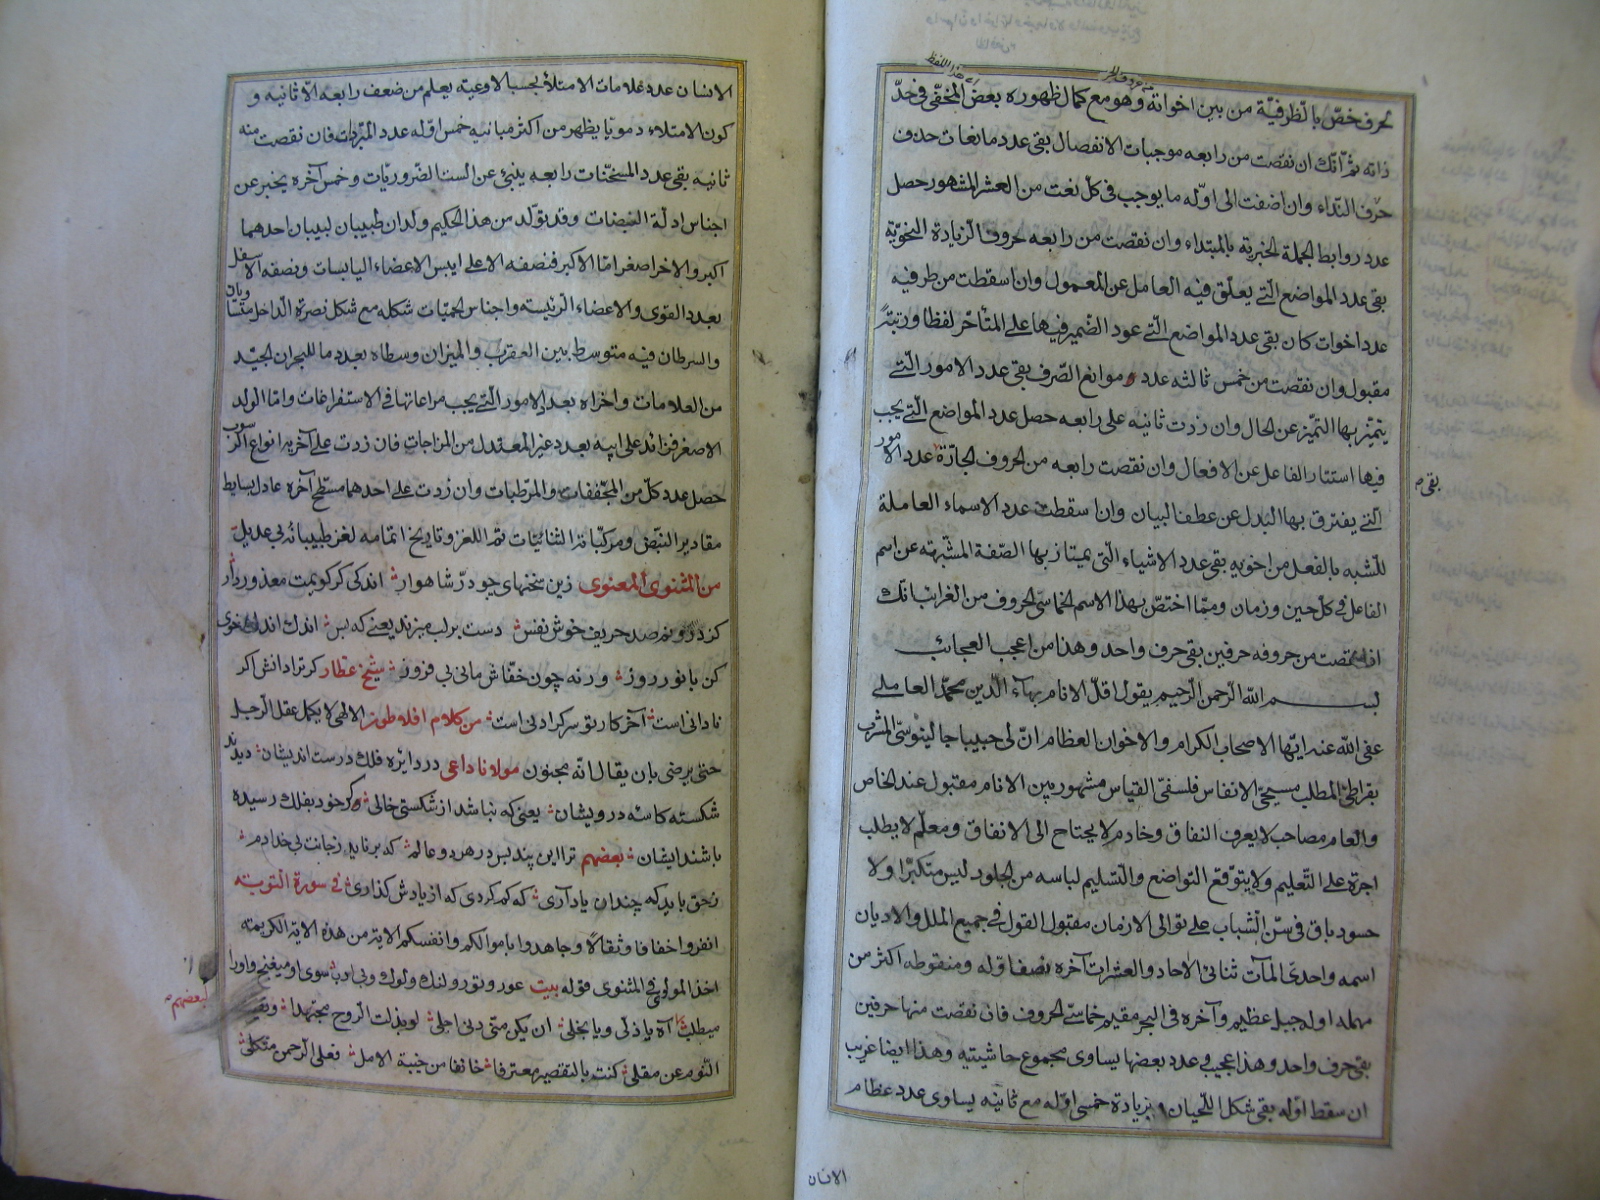 لحرف خصّ بالظرفيّة من بين اخوانه وهو مع كمال ظهوره بعض المخفّى فى حدّ
ذاته ثمّ انّك ان نقصت من رابعه موجبات الانفصال بقى عدد مانعات حذف
حرف النّداء وان اضفت الى اوّله ما يوجب فى كلّ نعت من العشر المشهور حصل
عدد روابط الجملة الخبريّة بالمبتداء وان نقصت من رابعه حروف الزّيادة النحويّة
بقى عدد المواضع الّتى يعلّق فيه العامل عن المعمول وان اسقطت من طرفيه
عدد اخوات كان بقى عدد المواضع الّتى عود الضّمير فيها على المتأخّر لفظا ورتبةً
مقبول وان نقصت من خمس ثالثه عدد موانع الصّرف بقى عدد الامور الّتى
يتميّز بها التميّز عن الحال وان زدت ثانيه على رابعه حصل عدد المواضع الّتى يجب
فيها استتار الفاعل عن الافعال وان نقصت رابعه من الحروف الجارّة عدد الامور
بقى
الّتى يفترق بها البدل عن عطف البيان وان اسقطت عدد الاسماء العاملة
للشبه بالفعل من اخويه بقى عدد الاشياء الّتى يمتاز بها الصّفة المشبّهة عن اسم
الفاعل فى كلّ حين وزمان وممّا اختصّ بهذا الاسم الخماسىّ الحروف من الغرائب انّك
اذا نقصت من حروفه حرفين بقى حرف واحد وهذا من اعجب العجائب
بسم الله الرّحمن الرّحيم يقول اقلّ الانام بهاء الدّين محمّد العاملى
عفى الله عنه ايّها الاصحاب الكرام والاخوان العظام انّ لى حبيبا جالينوسىّ المشرب
بقراطىّ المطلب مسيحىّ الانفاس فلسفىّ القياس مشهور بين الانام مقبول عند الخاص
والعام مصاحب لا يعرف النفاق وخادم لا يحتاج الى الانفاق ومعلّم لا يطلب
اجرة على التّعليم ولا يتوقّع التواضع والتّسليم لباسه من الجلود ليس متكبّرا ولا
حسود باق فى سنّ الشّباب على توالى الازمان مقبول القول فى جميع الملل والاديان
اسمه واحدىّ المآت ثنائىّ الاحاد والعشرات آخره نصف اوّله ومنقوطه اكثر من
مهمله اوله جبل عظيم وآخره فى البحر مقيم خماسىّ الحروف فان نقصت منها حرفين
بقى حرف واحد وهذا عجيب وعدد بعضها يساوى مجموع حاشيتيه وهذا ايضا غريب
ان سقط اوّله بقى شكل اللّحيان وبزيادة خمسى اوّله مع ثانيه يساوى عدد عظام
الانسان
الانسان عدد علامات الامتلأ بحسب الاوعية يعلم من ضعف رابعه الّا ثانيه و
كون الامتلاء دمويّا يظهر من اكثر مبانيه خمس اوّله عدد المبرّدات فان نقصت منه
ثانيه بقى عدد المسخّنات رابعه ينبئ عن الست الضّروريّات وخمس آخره يخبر عن
اجناس ادلّة النبضات وقد تولّد من هذا الحكيم ولدان طبيبان لبيبان احدهما
اكبر والاخر اصغر امّا الاكبر فنصفه الاعلى ايبس الاعضاء اليابسات ونصفه الاسفل
بعدد القوى والاعضاء الرّئيسه واجناس الحميّات شكله مع شكل نصرة الدّاخل متساويان
والسرطان فيه متوسط بين العقرب والميزان وسطاه بعدد ما للبحران الجيّد
من العلامات واخراه بعدد الامور الّتى يجب مراعاتها فى الاستفراغات وامّا الولد
الاصغر فزائد على ابيه بعدد غير المعتدل من المزاجات فان زدت على آخريه انواع الرسوب
حصل عدد كلّ من المجفّفات والمرطبات وان زدت على احدهما مسطّح آخره عادل بسايط
مقادير النّبض ومركّباته الثنائيّات تمّ اللغز وتاريخ اتمامه لغز طبيبانه بى عديل
من المثنوى المعنوى زين سخنهاى چو درّ شاهوار اندكى گر گويمت معذور دار
گز درونم صد حريف خوش نفس دست بر لب ميزند يعنى كه بس اندك اندك خوى
كن با نور روز ورنه چون خفّاش مانى بى فروز شيخ عطار گر ترا دانش اگر
نادانى است آخر كار تو سرگردانى است من كلام افلاطون الالهى لا يكمل عقل الرجل
حتى يرضى بان يقال انّه مجنون مولانا داعى در دايره فلك درست انديشان ديدند
شكسته كاسه درويشان يعنى كه نباشد از شكستى خالى گر خود بفلك رسيده
باشند ايشان بعضهم ترا اين پند بس در هر دو عالم كه بر نايد ز جانت بى خدا دم
ز حق بايد كه چندان ياد آرى كه گم گردى گر از يادش گذارى فى سورة التوبه
انفروا خفافا وثقالًا وجاهدوا باموالكم وانفسكم الاية من هذه الاية الكريمه
اخذ المولوى فى المثنوى قوله بيت عور وتور ولنگ ولوك وبى ادب سوى او ميغنج واورا
ميطلب آه يا ذلّى ويا خجلى ان يكن منّى دنى اجلى لو بذلت الرّوح مجتهدا ونفيت
لبعضهم
النّوم عن مقلى كنت بالتقصير معترفا خائفا من خيبة الامل فعلى الرّحمن متّكلى